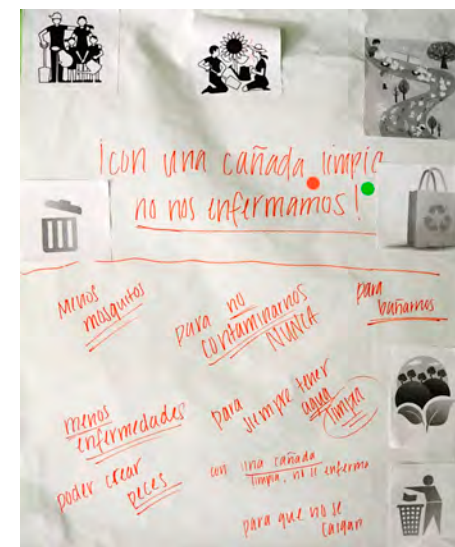 ¡con una cañada limpia
no nos enfermamos!
Menos
mosquitos
para no
contaminarnos
NUNCA
para
bañarnos
menos
enfermedades
para
siempre tener
agua
limpia
poder crear
peces
con una cañada
limpia, no se enferma
para que no se
caigan